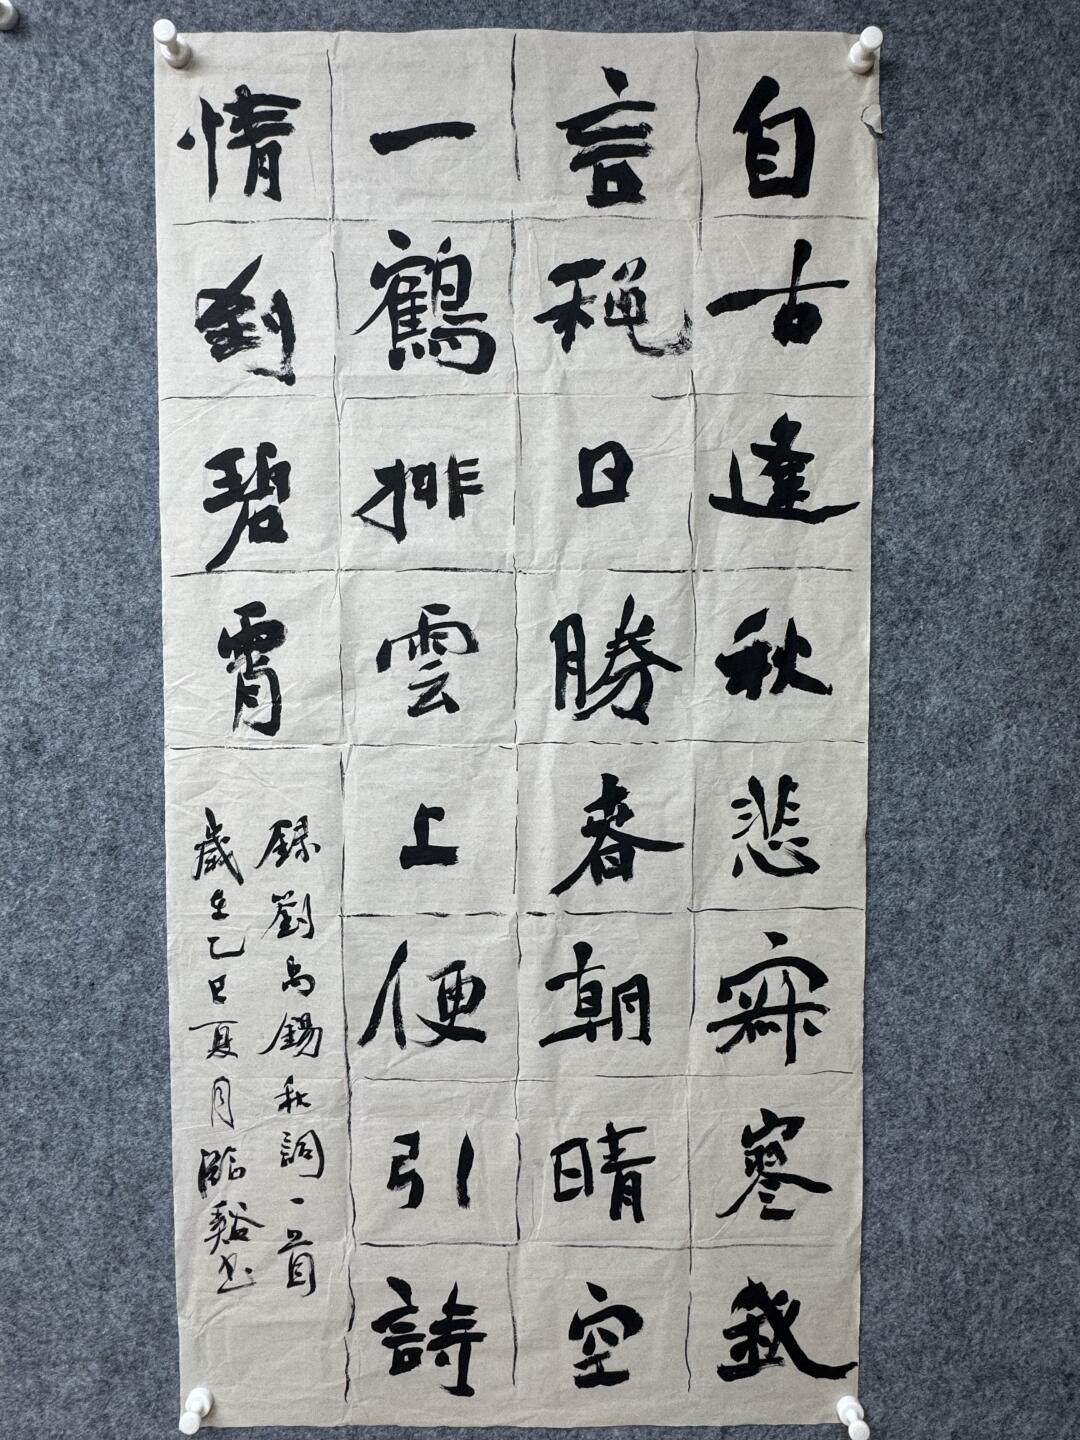 自古逢秋悲寂寥我
言秋日勝春朝晴空
一鶴排雲上便引詩
情到碧霄
錄劉禹錫秋詞一首
歲在乙巳夏月臨谿書